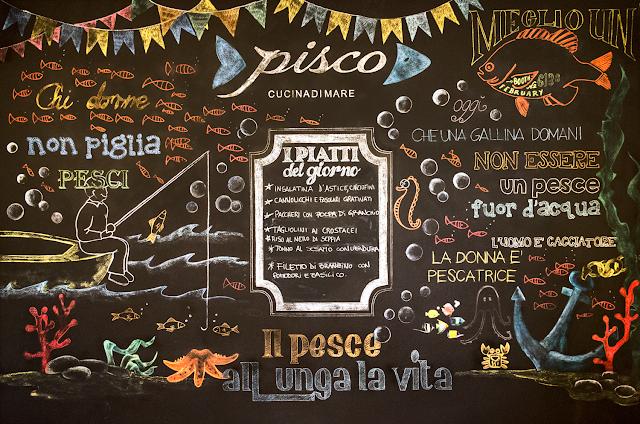 pisco
CUCINADIMARE
Chi dorme
non piglia
PESCI
I PIATTI
del giorno
INSALATINA D'ASTICE, CATALANA
CANNOLICCHI E FASOLARI GRATINATI
PACCHERI CON POLPA DI GRANCHIO
TAGLIOLINI AI CROSTACEI
RISO AL NERO DI SEPPIA
TONNO AL SESAMO CON VERDURA
FILETTO DI BRANZINO CON
POMODORI E BASILICO.
MEGLIO UN
BOOTH
FEBRUARY
oggi
CHE UNA GALLINA DOMANI
NON ESSERE
un pesce
fuor d'acqua
L'UOMO E' CACCIATORE
LA DONNA E'
PESCATRICE
Il pesce
alLunga la vita